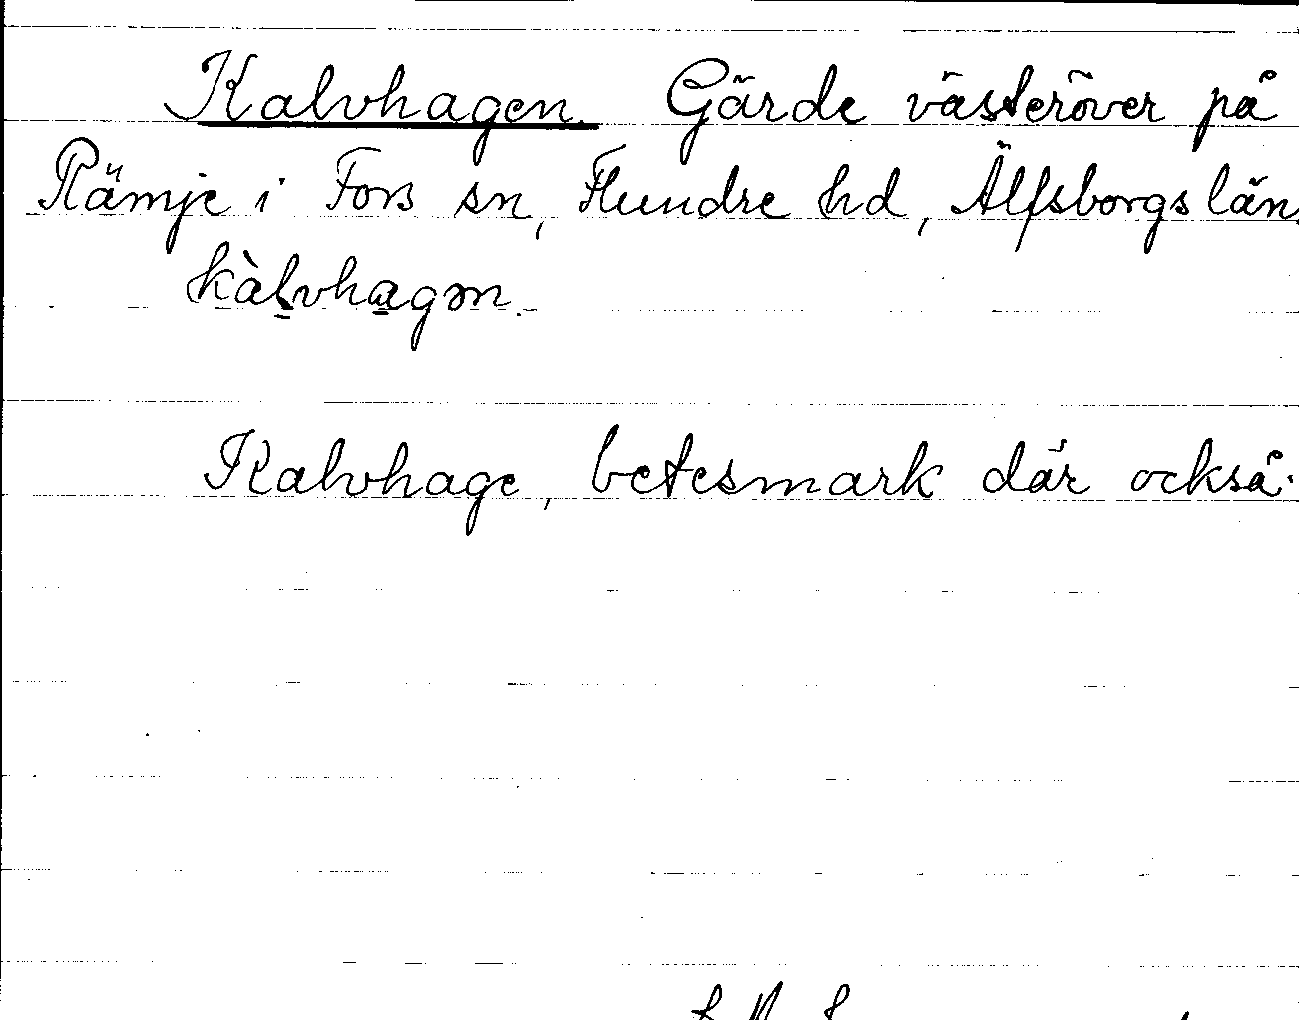 Kalvhagen. Gärde västeröver på
Rämje i Fors sn, Flundre hd, Älfsborgs län.
kàlvhagən.
Kalvhage, betesmark där också.